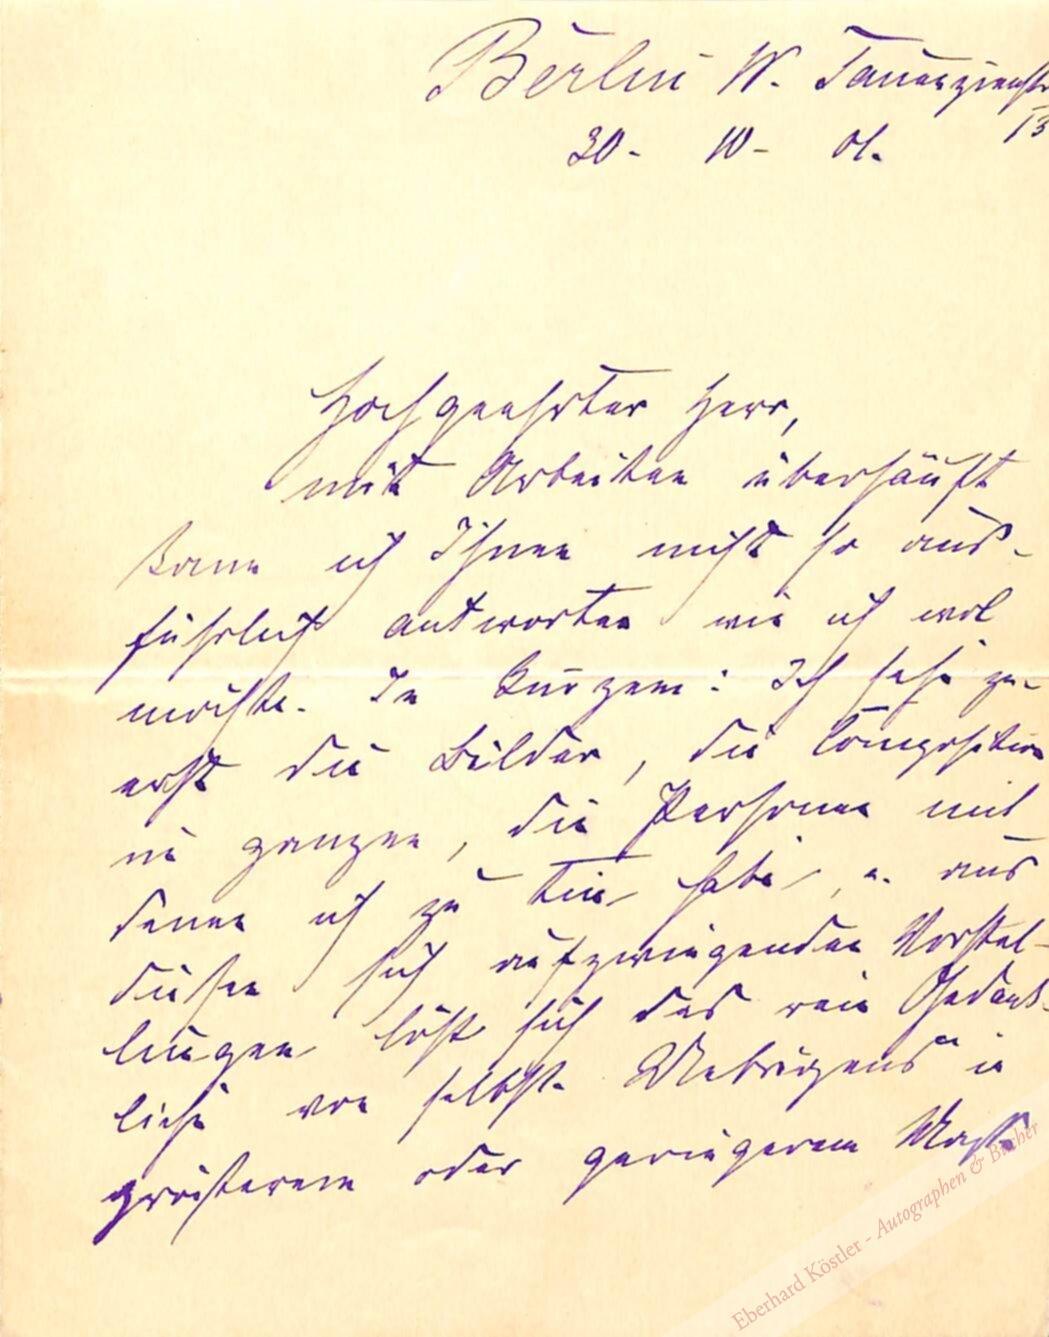 Berlin W. Tauenzienstr
13
30 - 10 - 01.
Hochgeehrter Herr,
mit Arbeiten überhäuft
kann ich Ihnen nicht so aus-
führlich antworten wie ich wol
möchte. In Kurzem: Ich sehe zu-
erst die Bilder, die Composition
im ganzen, die Personen mit
denen ich zu tun habe, u. aus
diesen sich aufzwingenden Vorstel-
lungen löst sich das rein Gedank-
liche von selbst. Uebrigens in
größerem oder geringerem Maße
Eberhard Köstler - Autographen & Bücher